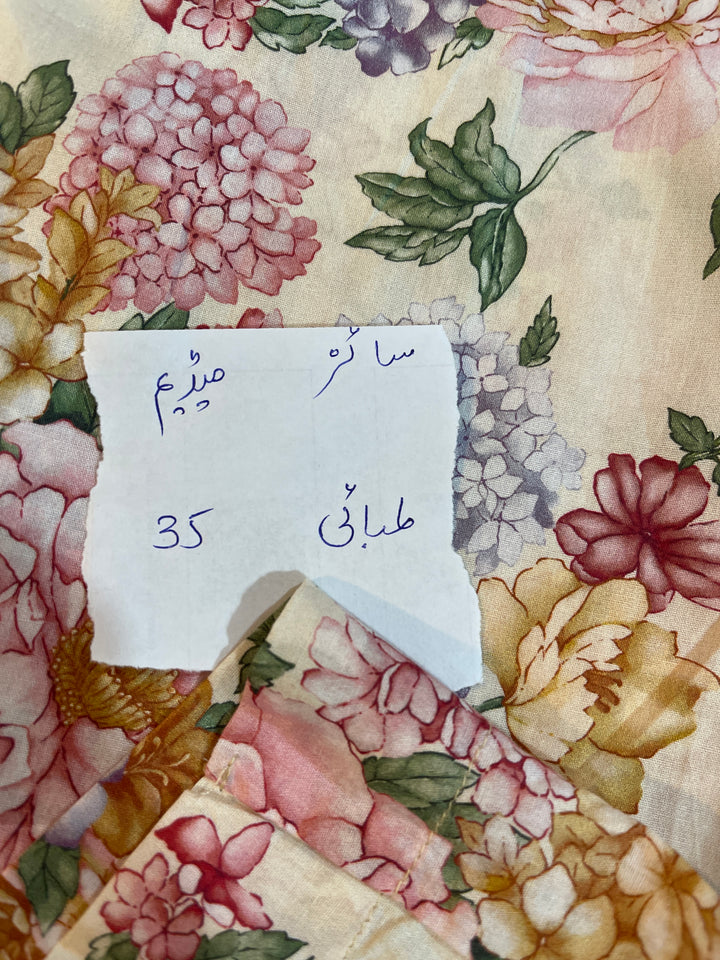 سائز میڈیم
لمبائی 35